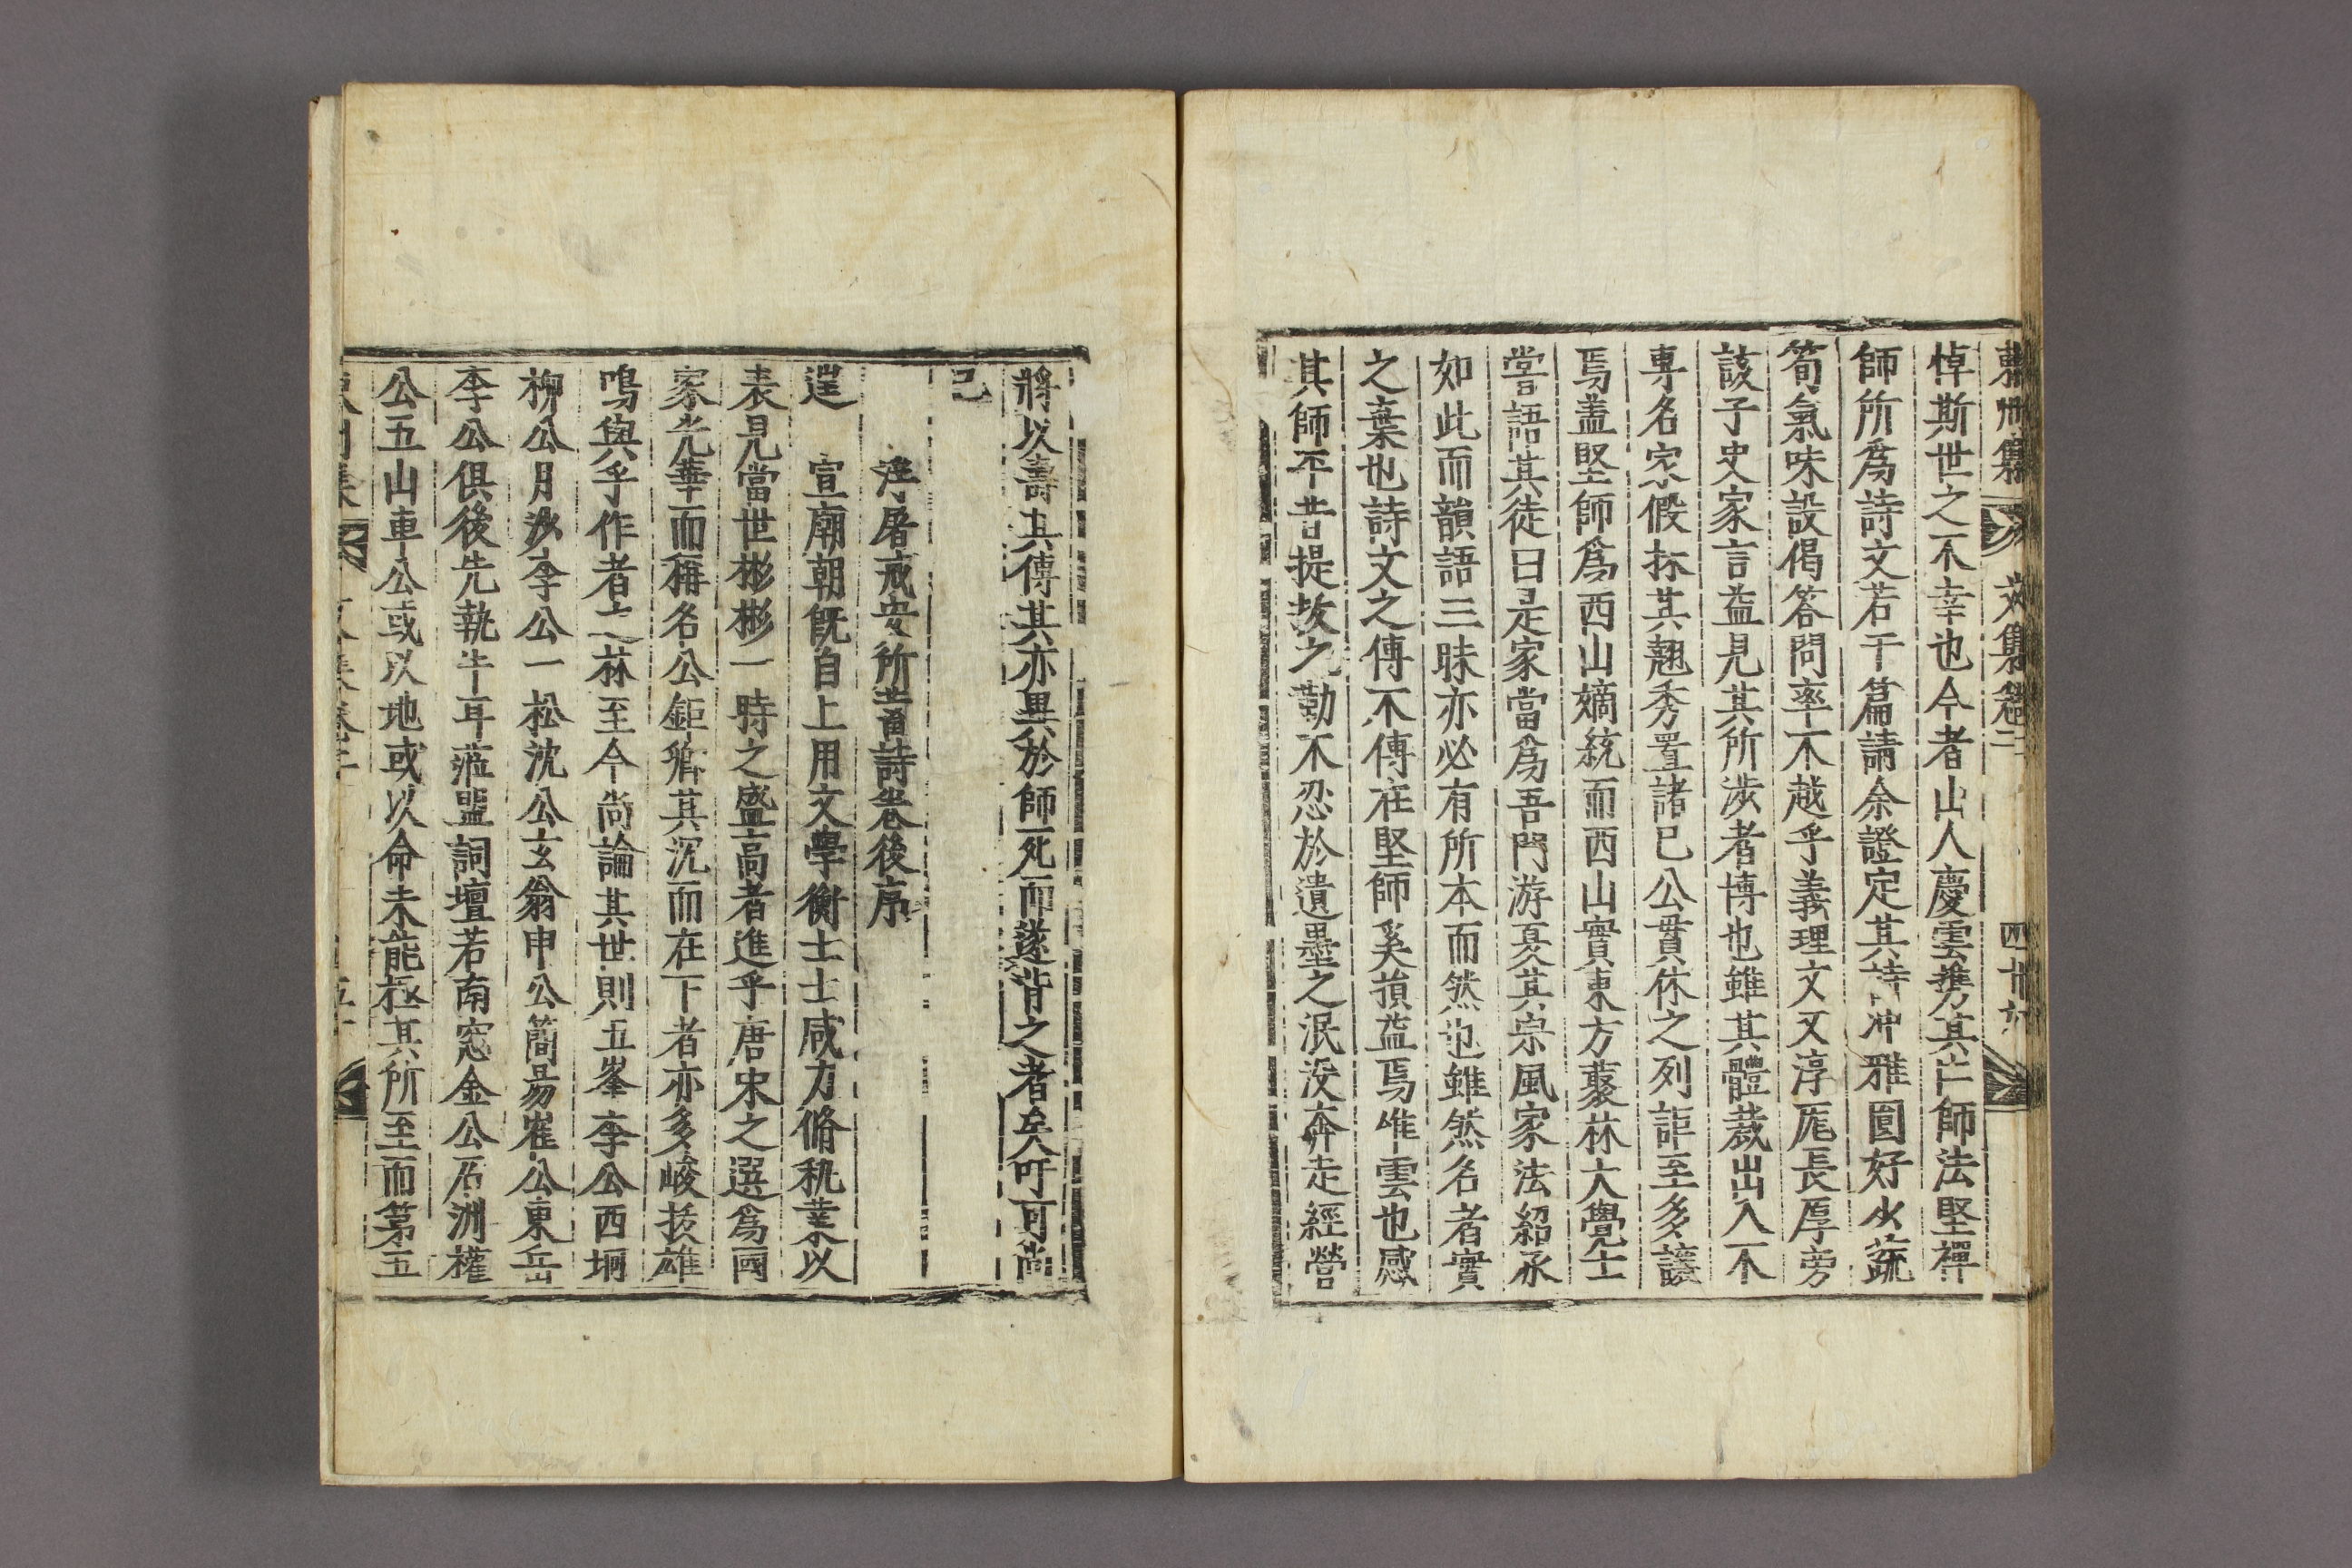 東州集 文集卷二 四十九
悼斯世之不幸也今者山人慶雲携其亡師法堅禪
師所爲詩文若干篇請余證定其詩冲雅圓好少蔬
筍氣味設偈答問率不越乎義理文又淳厖長厚旁
該子史家言益見其所涉者博也雖其體裁出入不
專名家假抹其翹秀置諸已公貫休之列詎至多讓
焉盖堅師爲西山嫡統而西山實東方叢林大覺士
嘗語其徒曰是家當爲吾門游夏其宗風家法紹承
如此而韻語三昧亦必有所本而然也雖然名者實
之棄也詩文之傳不傳在堅師奚損益焉唯雲也感
其師平昔提挈之勤不忍於遺墨之泯没奔走經營
將以壽其傳其亦異於師死而遂背之者矣吁可尚
已
浮屠戒安所蓄詩卷後序
逞 宣廟朝旣自上用文學衡士士咸力脩秇業以
表見當世彬彬一時之盛高者進乎唐宋之選爲國
家光華而稱名公鉅卿其沉而在下者亦多峻拔雄
鳴與乎作者之林至今尚論其世則五峯李公西坰
柳公月沙李公一松沈公玄翁申公簡昜崔公東岳
李公俱後先執牛耳蒞盟詞壇若南窓金公石洲權
公五山車公或以地或以命未能極其所至而第五